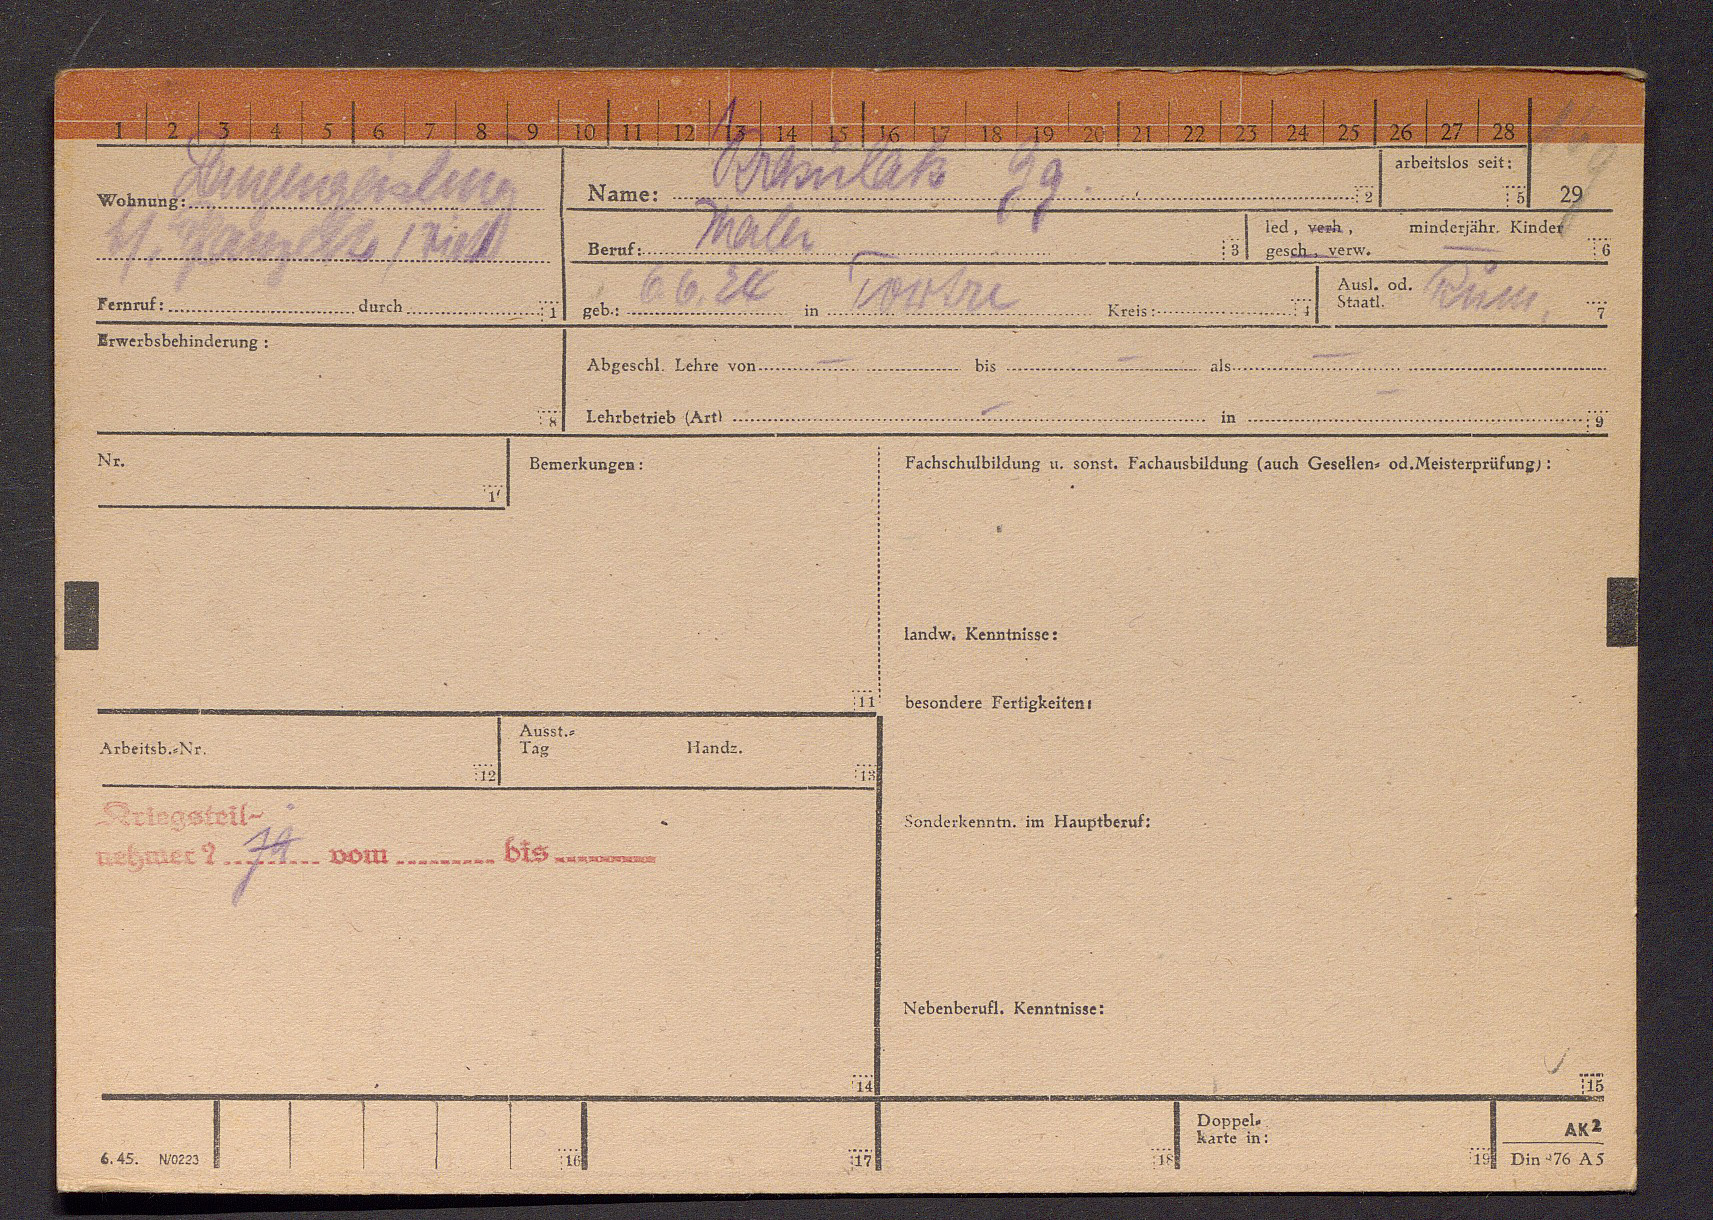 1 2 3 4 5 6 7 8 9 10 11 12 13 14 15 16 17 18 19 20 21 22 23 24 25 26 27 28
Wohnung: Langengeisling
Name: Gg. 2
arbeitslos seit: 5 29
b/.
Beruf: Maler 3
led, verh, minderjähr. Kinder —
gesch, verw. 6
Fernruf: durch 1
geb.: 6.6.24 in Kreis: 4
Ausl. od. Rum.
Staatl. 7
Erwerbsbehinderung: 8
Abgeschl. Lehre von — bis — als —
Lehrbetrieb (Art) — in — 9
Nr.
Bemerkungen: 11
Fachschulbildung u. sonst. Fachausbildung (auch Gesellen- od. Meisterprüfung):
landw. Kenntnisse:
besondere Fertigkeiten:
Arbeitsb.-Nr. 12
Ausst.-
Tag Handz. 13
Kriegsteil-
nehmer? vom bis
Sonderkenntn. im Hauptberuf:
Nebenberufl. Kenntnisse:
14
15
6. 45. N/0223 16 17 18
Doppel-
karte in: 19
AK2
Din 476 A5